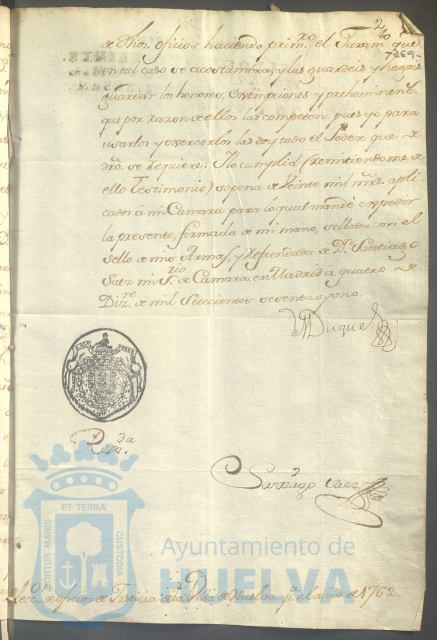 2
269
de dhos. oficios haciendo prim.ro el Juram.to que
en tal caso se acostumbra, y las guardeis y hagais
guardar los honores, exempciones y preheminencias
que por razon de ellos las competen pues yo para
usarlos y exercerlos las doy todo el Poder que de
dro. se requiere: Y lo cumplid (remitiendome de
ello Testimonio) sopena de Veinte mil mrs. apli-
cados á mi Camara para lo qual mandé expedir
la presente, firmada de mi mano, sellada con el
sello de mis Armas, y refrendada de Dn. Santiago
Saez mi S.rio de Camara en Madrid á quatro de
Diz.re de mil Setecientos sesenta y uno.
El Duque
R.da
Santiago Saez
PORTUS MARIS ET TERRÆ CUSTODIA
Ayuntamiento de
HUELVA
Elec.on de oficios de Justicia de la Villa de Huelva p.a el año de 1762.